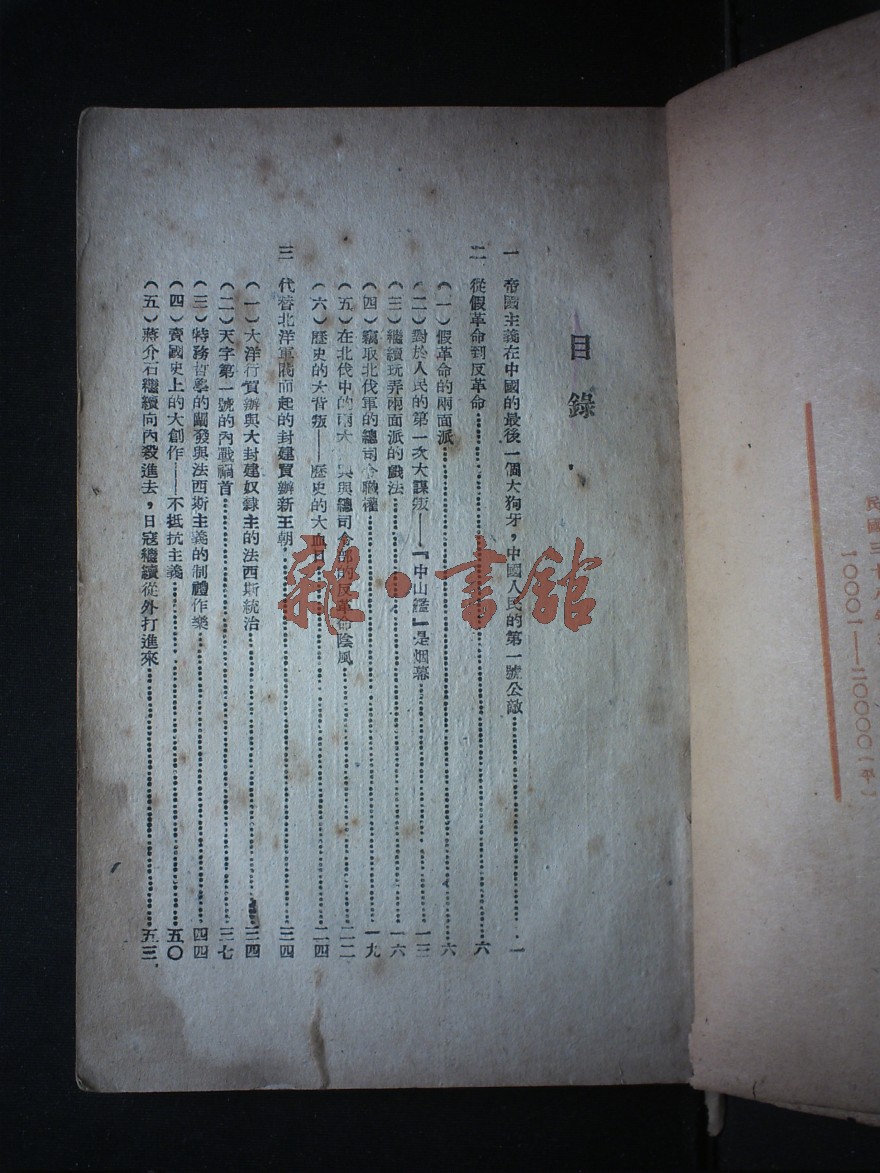 民國三十八年
10001—20000(平)
目錄
一 帝國主義在中國的最後一個大狗牙，中國人民的第一號公敵……一
二 從假革命到反革命……六
(一)假革命的兩面派……六
(二)對於人民的第一次大謀叛——『中山艦』是烟幕……一三
(三)繼續玩弄兩面派的戲法……一六
(四)竊取北伐軍的總司令職權……一九
(五)在北伐中的兩大 與總司令部的反革命陰風……二二
(六)歷史的大背叛——歷史的大血……二四
三 代替北洋軍閥而起的封建買辦新王朝……三四
(一)大洋行買辦與大封建奴隸主的法西斯統治……三四
(二)天字第一號的內戰禍首……三七
(三)特務哲學的闡發與法西斯主義的制禮作樂……四四
(四)賣國史上的大創作——不抵抗主義……五〇
(五)蔣介石繼續向內殺進去，日寇繼續從外打進來……五三
雜·書館